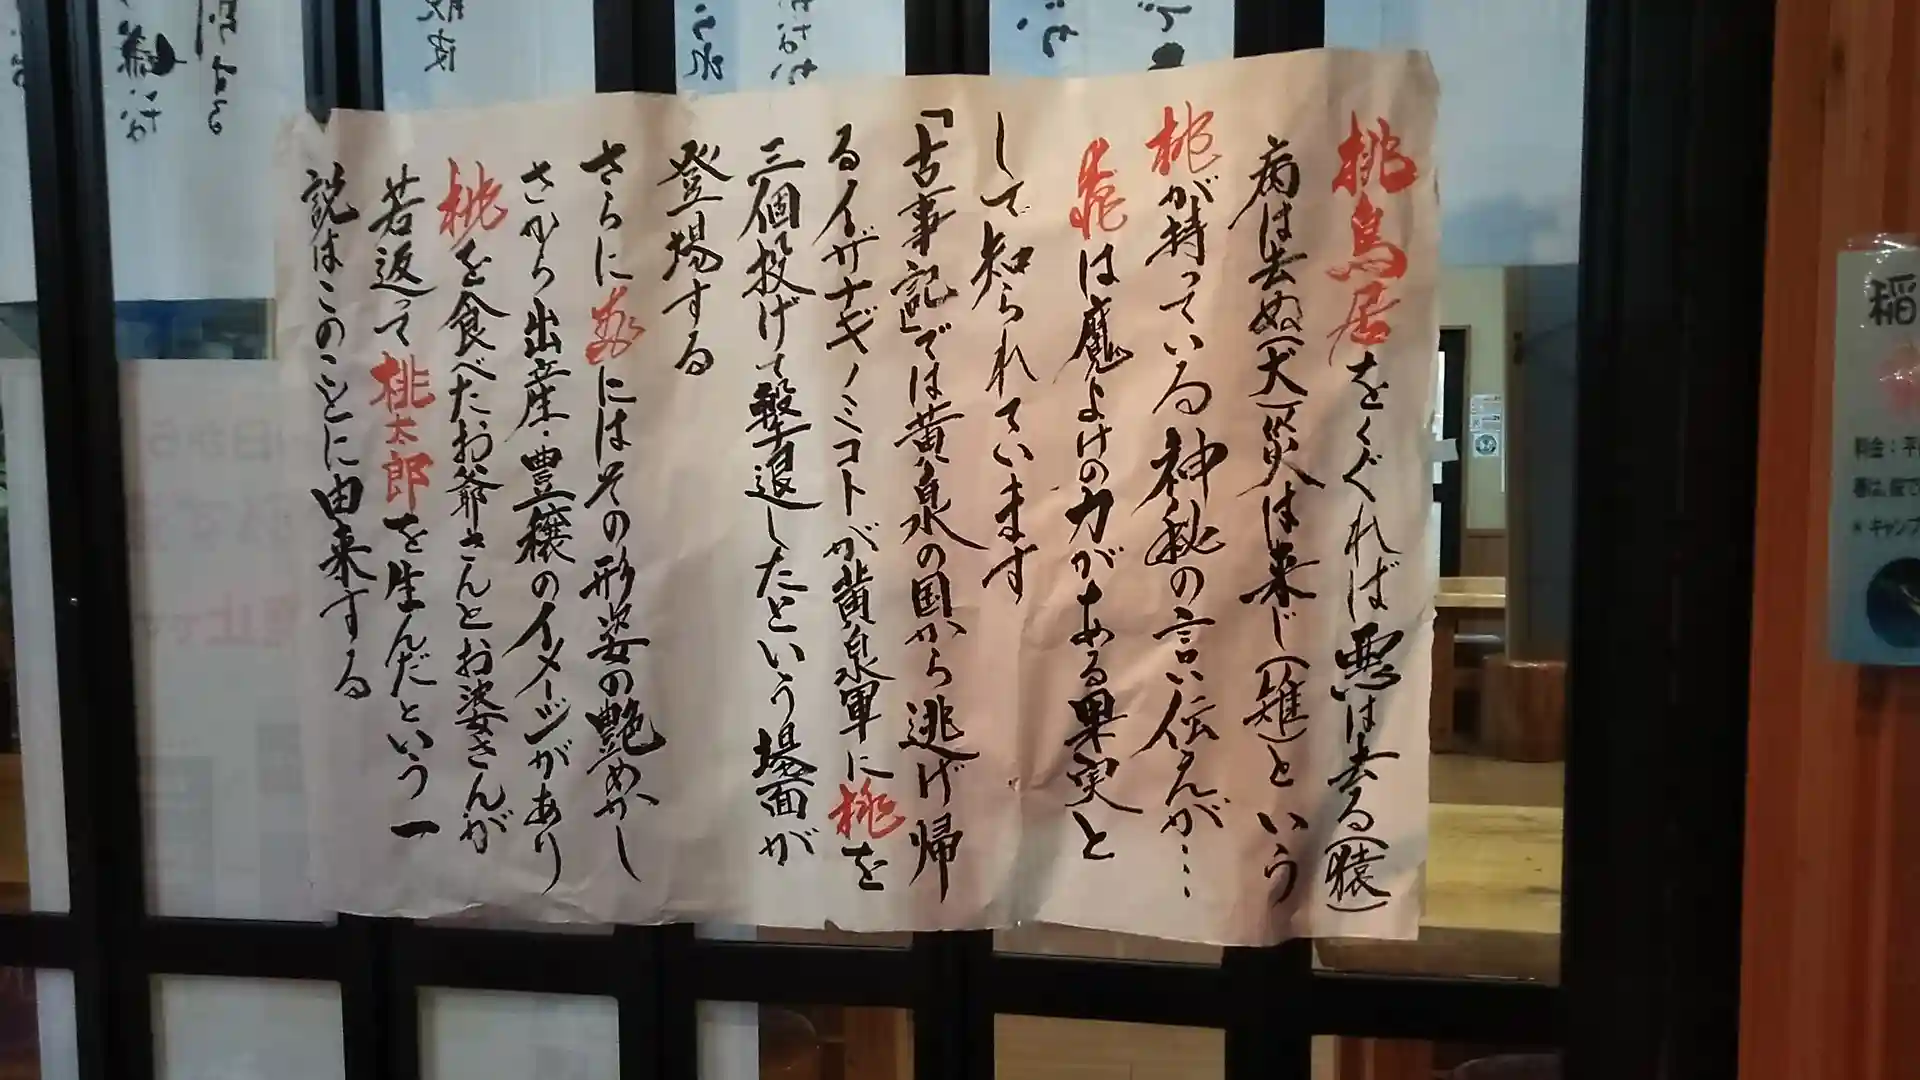 桃鳥居をくぐれば悪は去る(猿)
病は去ぬ(犬)災は来じ(雉)という
桃が持っている神秘の言い伝えが…
桃は魔よけの力がある果実と
して知られています
「古事記」では黄泉の国から逃げ帰
るイザナギノミコトが黄泉軍に桃を
三個投げて撃退したという場面が
登場する
さらに桃にはその形姿の艶めかし
さから出産・豊穣のイメージがあり
桃を食べたお爺さんとお婆さんが
若返って桃太郎を生んだという一
説はこのことに由来する
稲
料金：平
※キャンプ